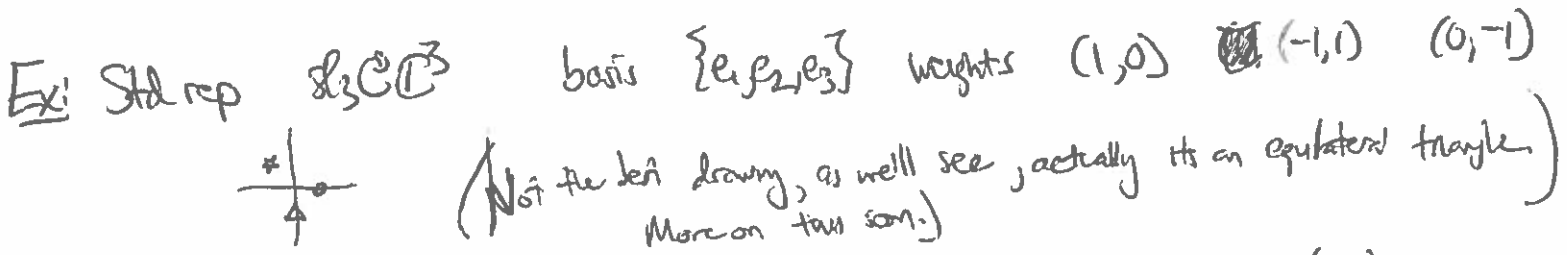 Ex: Std rep sl₃ℂ↻ℂ³ basis {e₁,e₂,e₃} weights (1,0) (-1,1) (0,-1)
(Not the best drawing, as we'll see, actually its an equilateral triangle.
More on this soon.)